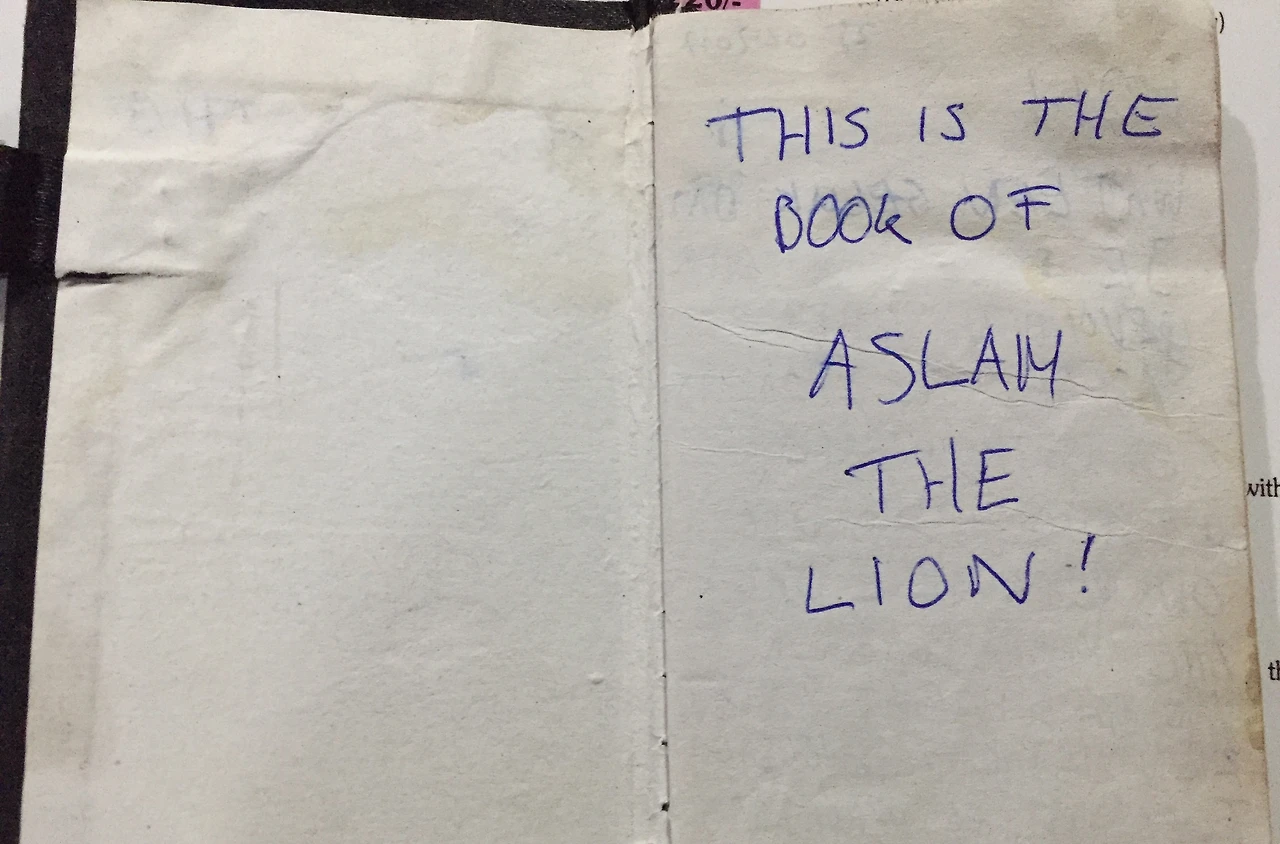 THIS IS THE
BOOK OF
ASLAM
THE
LION!
with